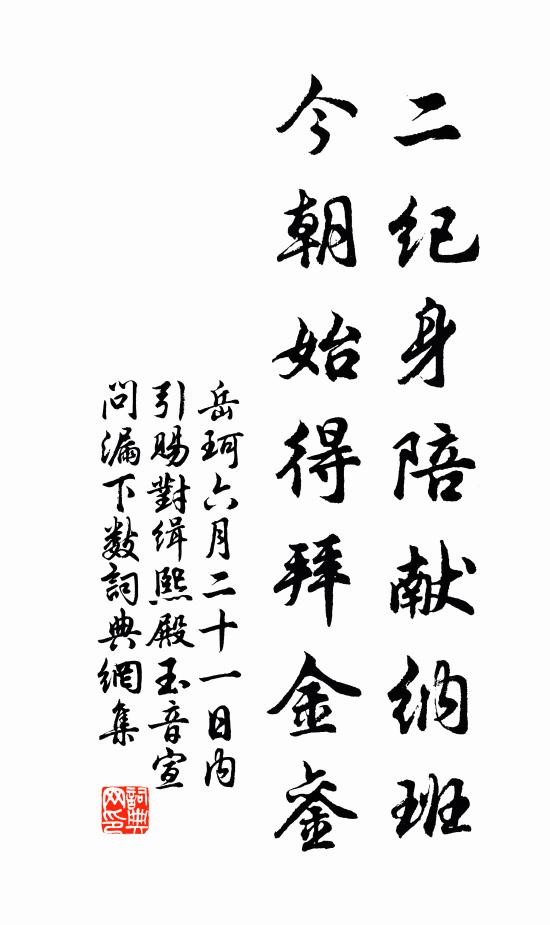 二纪身陪献纳班
今朝始得拜金銮
岳珂六月二十一日内
引賜對缉熙殿玉音宣
問漏下数詞典網集
詞典
网印